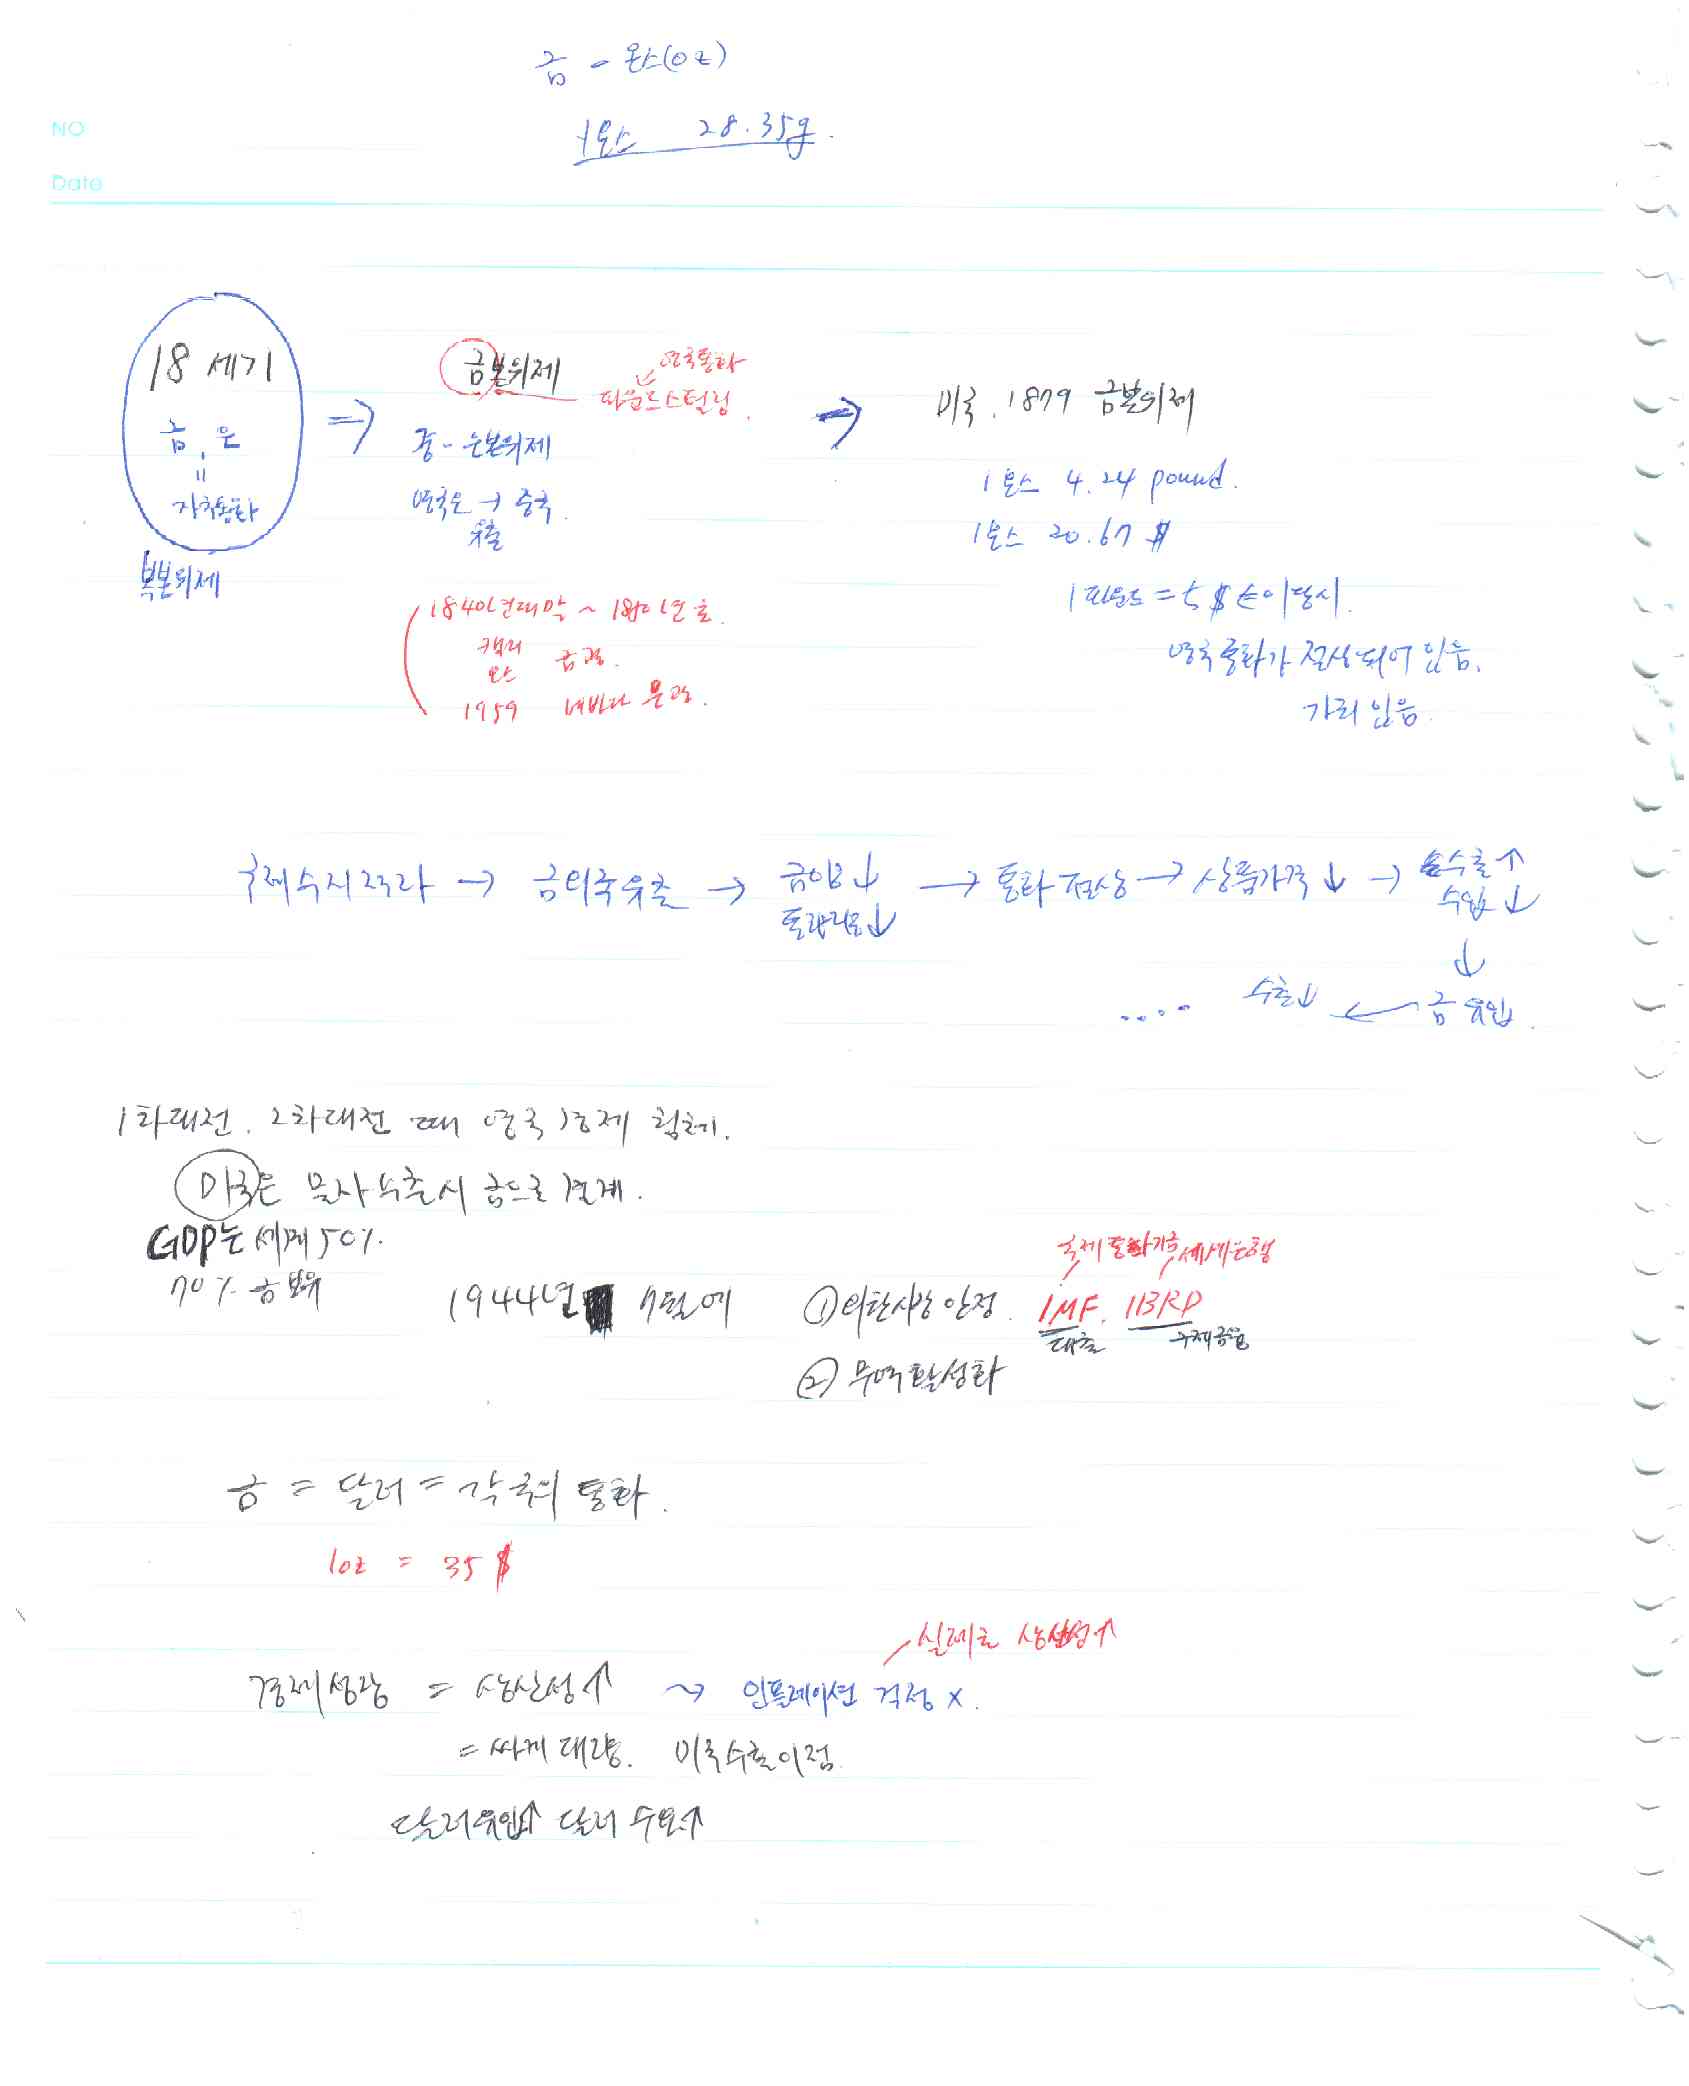 금 - 온스(oz)
1온스 28.35g.
NO
Date
18 세기
금, 은
=
자국통화
복본위제
⇒
금본위제
영국통화
파운드스털링.
중 - 은본위제
영국은 → 중국.
유출
1840년대말 ~ 1850년초.
금광.
1959 네바다 은광.
⇒
미국. 1879 금본위제
1온스 4.24 pound.
1온스 20.67 $
1파운드 = 5 $ ← 이당시.
영국통화가 절상되어 있음.
가치 있음.
국제수지적자 → 금외국유출 → 금양↓ → 통화절상 → 상품가격↓ → 수출↑
통화량↓ 수입↓
↓
.... 수출↓ ← 금 유입.
1차대전. 2차대전 때 영국 경제 침체.
미국은 물자수출시 금으로 결제.
GDP는 세계 50%.
70% 금보유
국제통화기금 세계은행
1944년 7월에 ① 외환시장 안정. IMF. IBRD
대출 구제금융
② 무역활성화
금 = 달러 = 각국의 통화.
1oz = 35 $
실제로 생산성↑
경제성장 = 생산성↑ ~> 인플레이션 걱정 x.
= 싸게 대량. 미국수출이점.
달러유입↑ 달러 수요↑